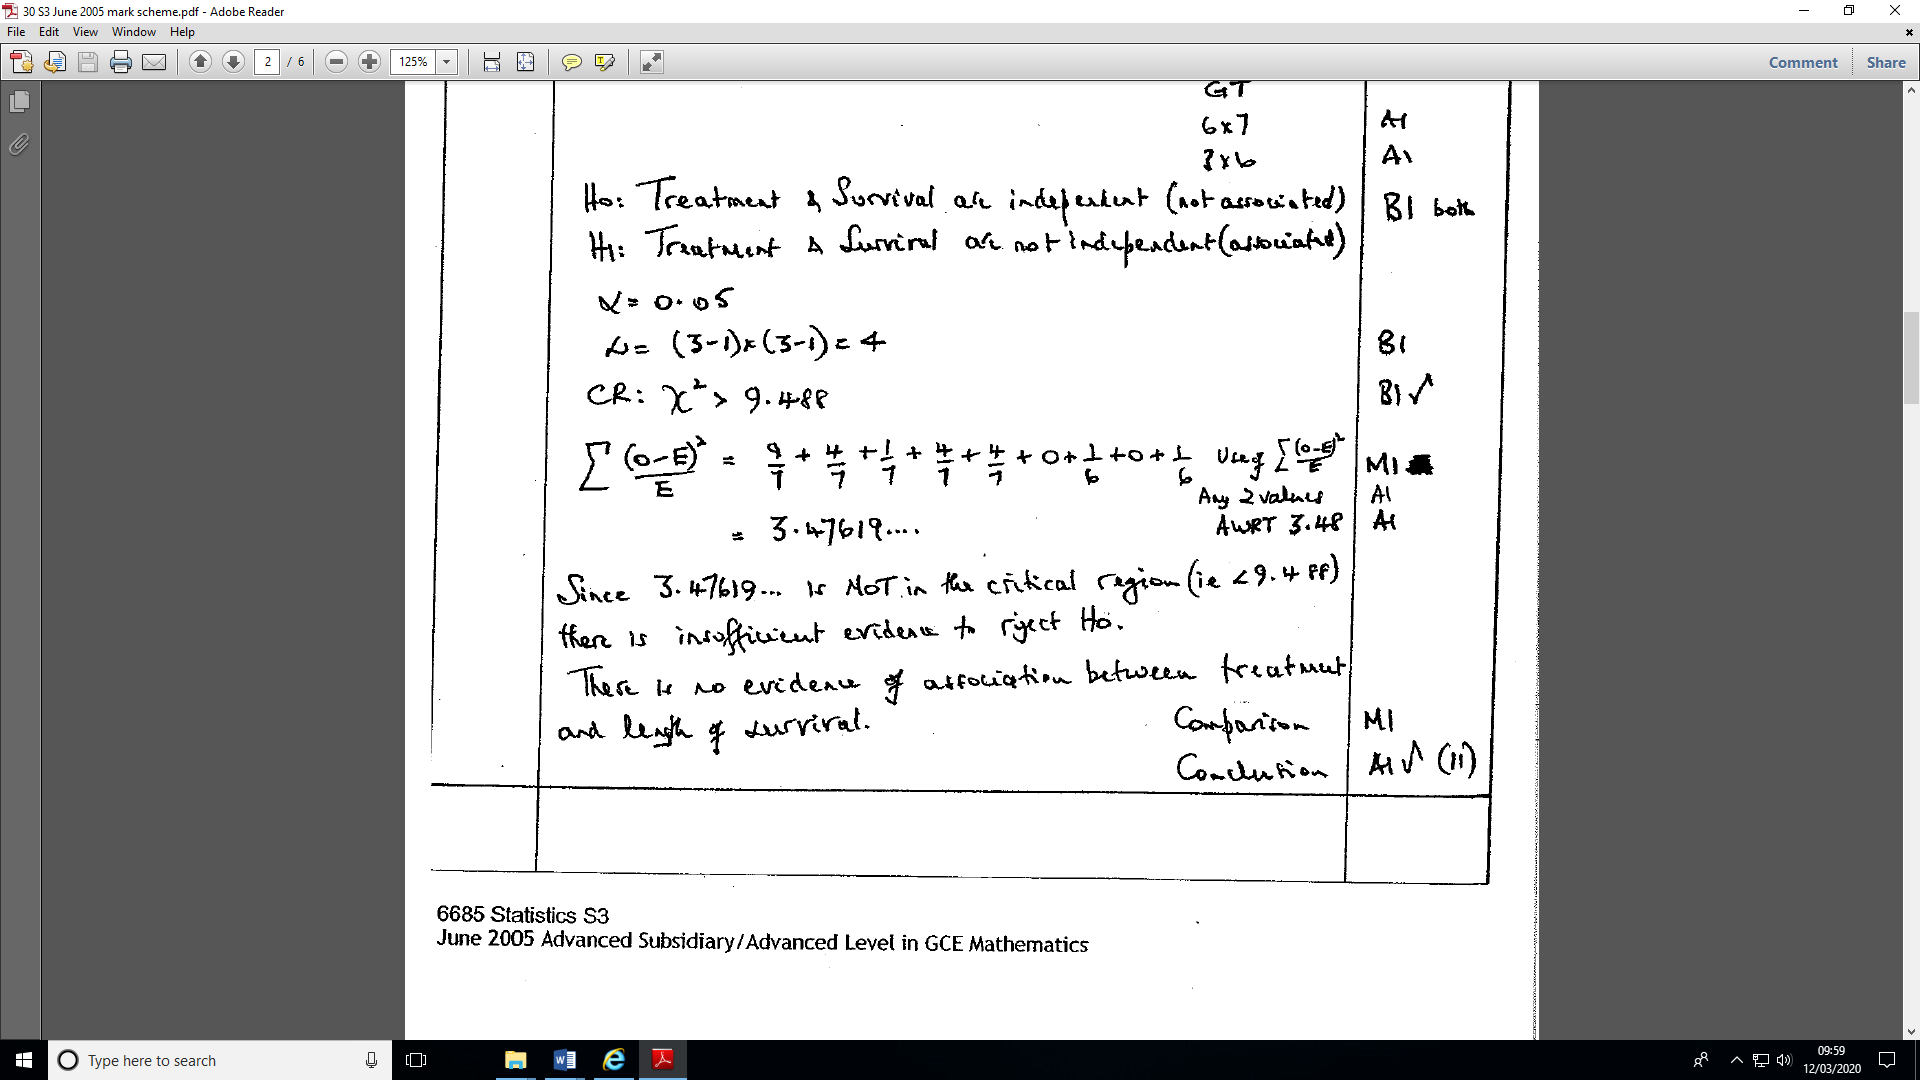 30 S3 June 2005 mark scheme.pdf - Adobe Reader
File Edit View Window Help
2 / 6 125% Comment Share
GT
6x7 A1
3x6 A1
H0: Treatment & Survival are independent (not associated) B1 both
H1: Treatment & Survival are not independent (associated)
α = 0.05
ν = (3-1)×(3-1) = 4 B1
CR: χ² > 9.488 B1√
∑ (O-E)²/E = 9/7 + 4/7 + 1/7 + 4/7 + 4/7 + 0 + 1/6 + 0 + 1/6 Use of ∑ (O-E)²/E M1
Any 2 values A1
= 3.47619.... AWRT 3.48 A1
Since 3.47619... is NOT in the critical region (ie < 9.488)
there is insufficient evidence to reject H0.
There is no evidence of association between treatment
and length of survival. Comparison M1
Conclusion A1√ (11)
6685 Statistics S3
June 2005 Advanced Subsidiary/Advanced Level in GCE Mathematics
Type here to search
09:59
12/03/2020